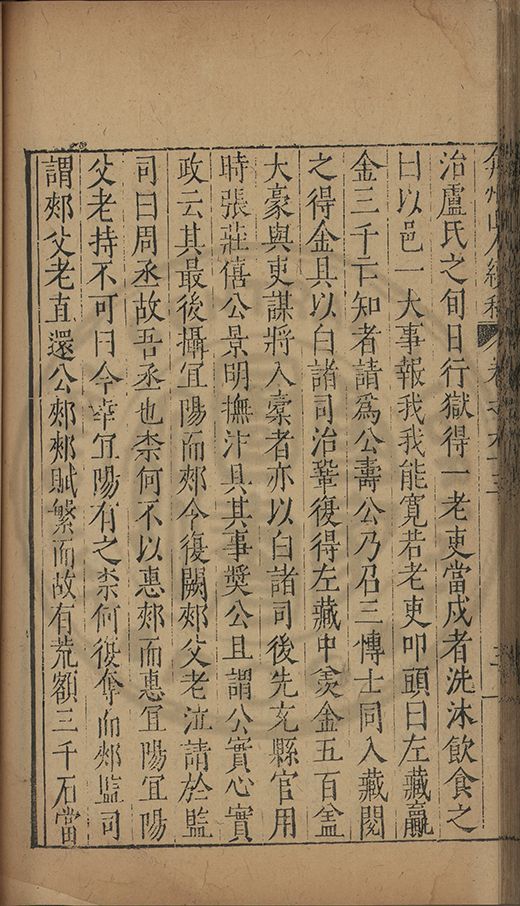 弇州山人續稿 卷之九十三 三
治盧氏之旬日行獄得一老吏當戍者洗沐飲食之
曰以邑一大事報我我能寬若老吏叩頭曰左藏贏
金三千亡知者請爲公壽公乃召三博士同入藏閱
之得金具以白諸司治鞏復得左藏中羨金五百金
大豪與吏謀將入橐者亦以白諸司後先充縣官用
時張莊僖公景明撫汴具其事奬公且謂公實心實
政云其最後攝宜陽而郟令復闕郟父老泣請於監
司曰周丞故吾丞也柰何不以惠郟而惠宜陽宜陽
父老持不可曰今幸宜陽有之柰何復奪而郟監司
謂郟父老直還公郟郟賦繁而故有荒額三千石當